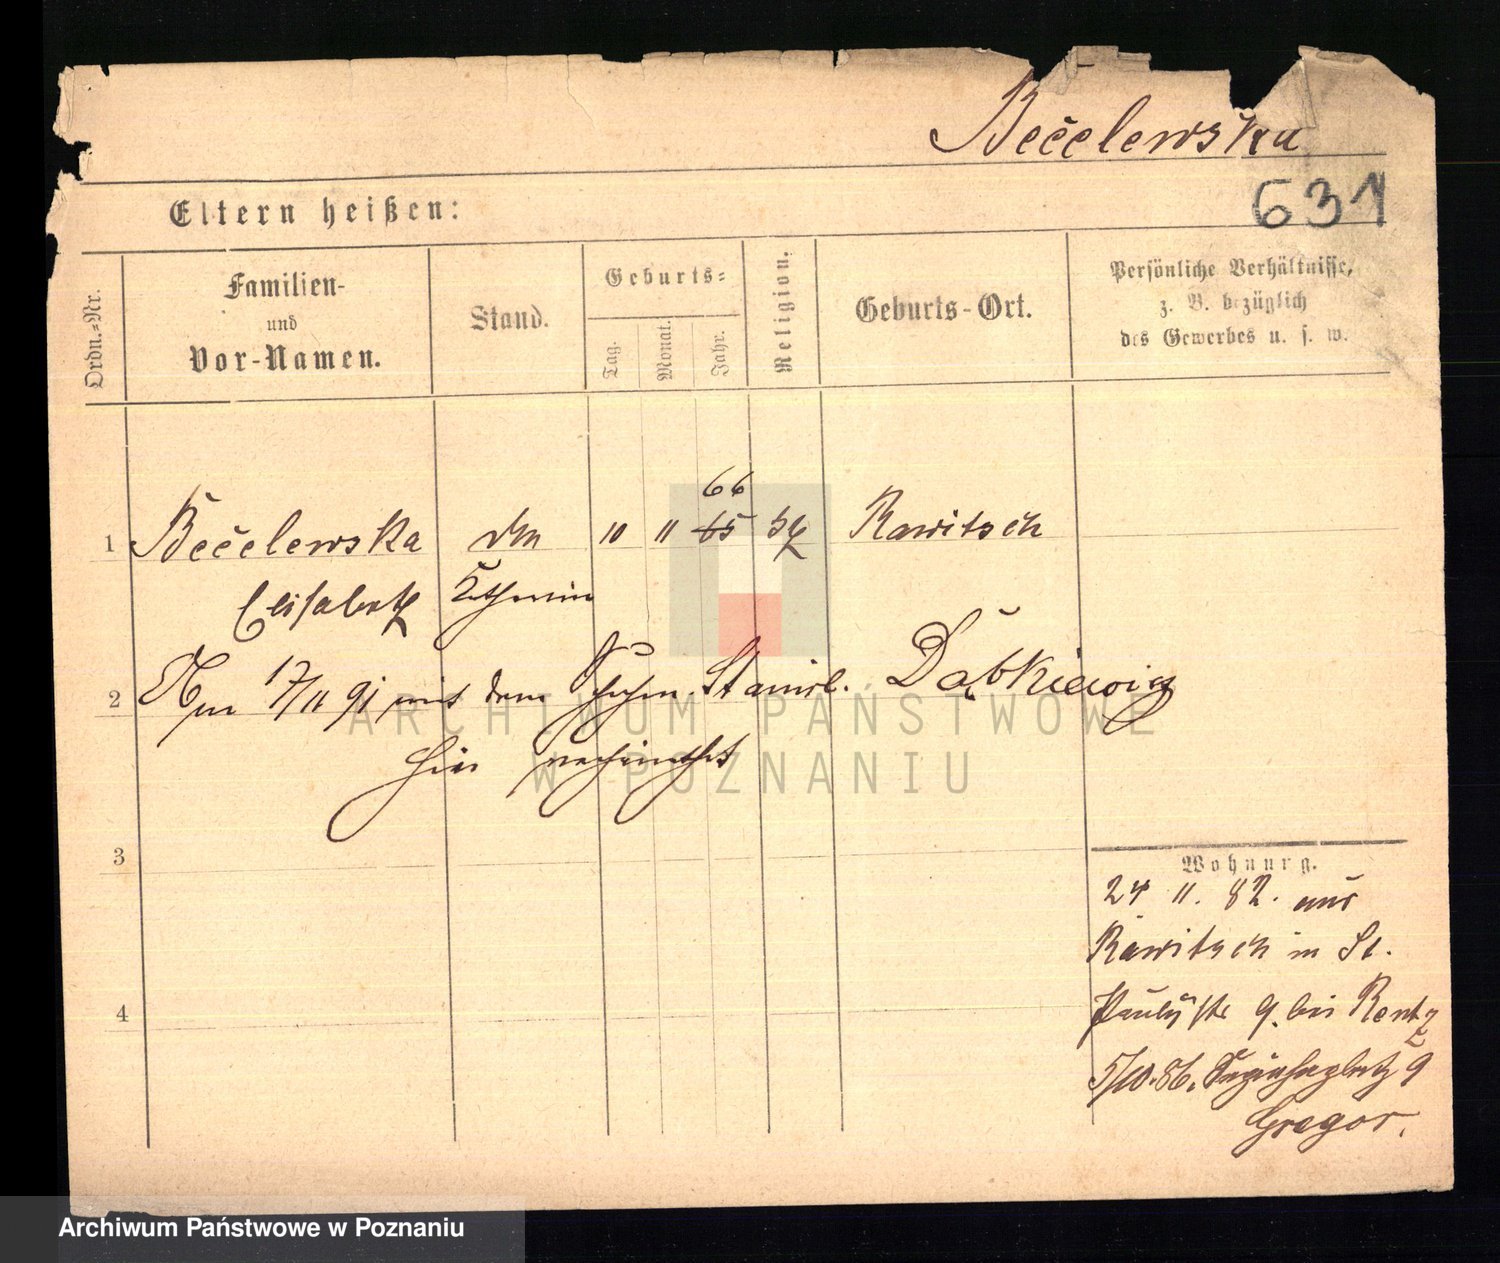 Bečelewska
631
Eltern heißen:
Ordn.=Nr.
Familien-
und
Vor-Namen.
Stand.
Geburts=
Tag.
Monat.
Jahr.
Religion.
Geburts-Ort.
Persönliche Verhältnisse,
z. B. bezüglich
des Gewerbes u. s. w.
66
1 Bečelewska 10 11 65 Rawitsch
Elisabeth
2 Am 17/11 91 mit dem Stanisl. Dąbkiewicz
hier
3
4
Wohnung.
24 11. 82. aus
Rawitsch in St.
9. bei Rentz
5/10.86. 9
Gregor.
ARCHIWUM PAŃSTWOWE
W POZNANIU
Archiwum Państwowe w Poznaniu